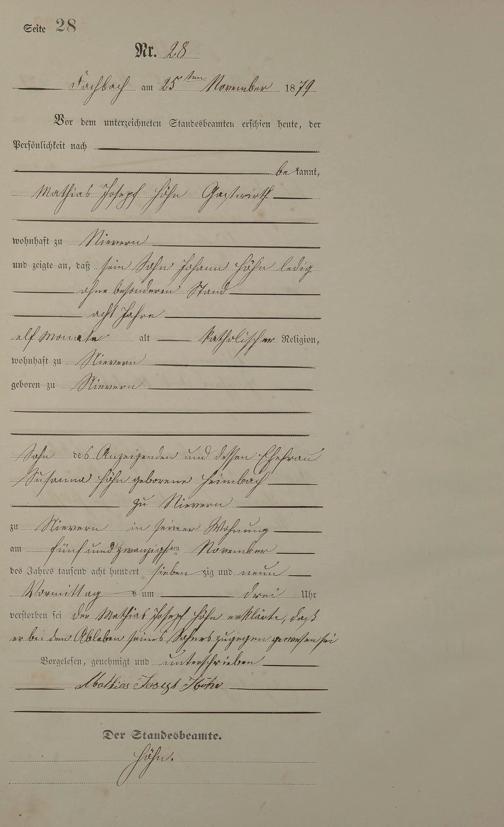 Seite 28
Nr. 28
Fachbach am 25ten November 1879
Vor dem unterzeichneten Standesbeamten erschien heute, der
Persönlichkeit nach
be kannt,
Mathias Josepf Höhn Gastwirth
wohnhaft zu Nievern
und zeigte an, daß sein Sohn Johann Höhn ledig
ohne besonderen Stand
acht Jahre
elf Monate alt katholischer Religion,
wohnhaft zu Nievern
geboren zu Nievern
Sohn des Anzeigenden und dessen Ehefrau
Susanna Höhn geborene Heimbach
zu Nievern
zu Nievern in seiner Wohnung
am fünfundzwanzigsten November
des Jahres tausend acht hundert sieben zig und neun
Vormittag s um drei Uhr
verstorben sei der Mathias Josepf Höhn erklärte, daß
er bei dem Ableben seines Sohnes zugegen gewesen sei
Vorgelesen, genehmigt und unterschrieben
Mathias Josept Höhn
Der Standesbeamte.
Höhn.